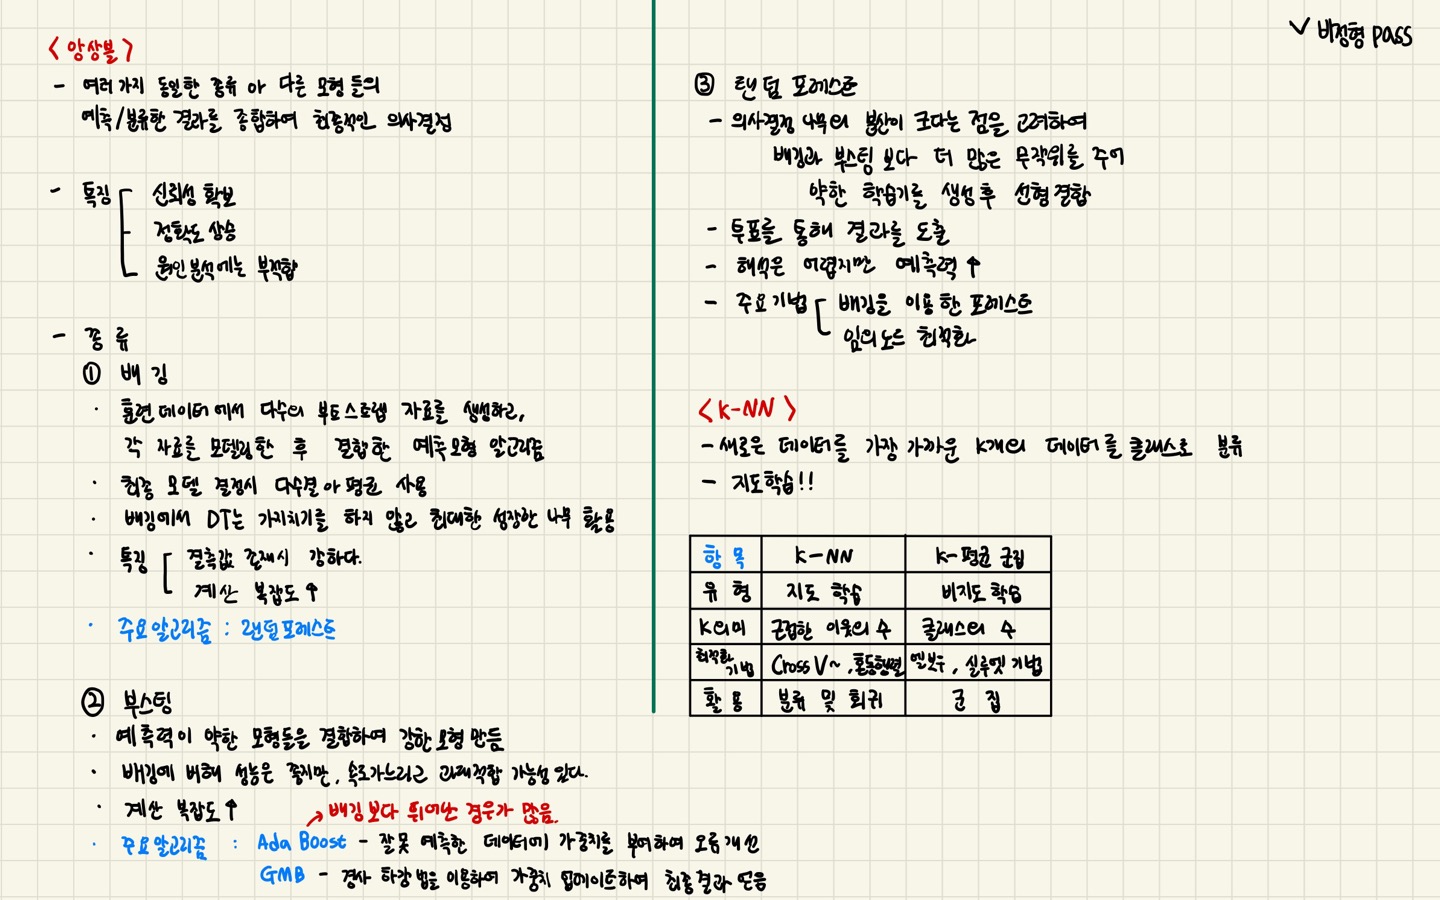 <앙상블>
- 여러가지 동일한 종류 or 다른 모형들의
예측/분류한 결과를 종합하여 최종적인 의사결정
- 특징 신뢰성 확보
정확도 상승
원인분석에는 부적합
- 종류
① 배깅
· 훈련데이터에서 다수의 부트스트랩 자료를 생성하고,
각 자료를 모델링한 후 결합한 예측모형 알고리즘
· 최종 모델 결정시 다수결 or 평균 사용
· 배깅에서 DT는 가지치기를 하지 않고 최대한 성장한 나무 활용
· 특징 결측값 존재시 강하다.
계산 복잡도↑
· 주요알고리즘 : 랜덤포레스트
② 부스팅
· 예측력이 약한 모형들을 결합하여 강한모형 만듦
· 배깅에 비해 성능은 좋지만, 속도가느리고 과대적합 가능성 있다.
· 계산 복잡도↑ → 배깅보다 뛰어난 경우가 많음.
· 주요알고리즘 : Ada Boost - 잘못 예측한 데이터에 가중치를 부여하여 오류개선
GMB - 경사 하강법을 이용하여 가중치 업데이트하여 최종결과 얻음
✓ 비정형 pass
③ 랜덤 포레스트
- 의사결정 나무의 분산이 크다는 점을 고려하여
배깅과 부스팅 보다 더 많은 무작위를 주어
약한 학습기를 생성후 선형결합
- 투표를 통해 결과를 도출
- 해석은 어렵지만 예측력↑
- 주요기법 배깅을 이용한 포레스트
임의노드 최적화
<K-NN>
- 새로운 데이터를 가장 가까운 K개의 데이터를 클래스로 분류
- 지도학습!!
항목 K-NN K-평균 군집
유형 지도 학습 비지도 학습
K의미 근접한 이웃의 수 클래스의 수
최적화 기법 Cross V~, 혼동행렬 엘보우, 실루엣 기법
활용 분류 및 회귀 군집